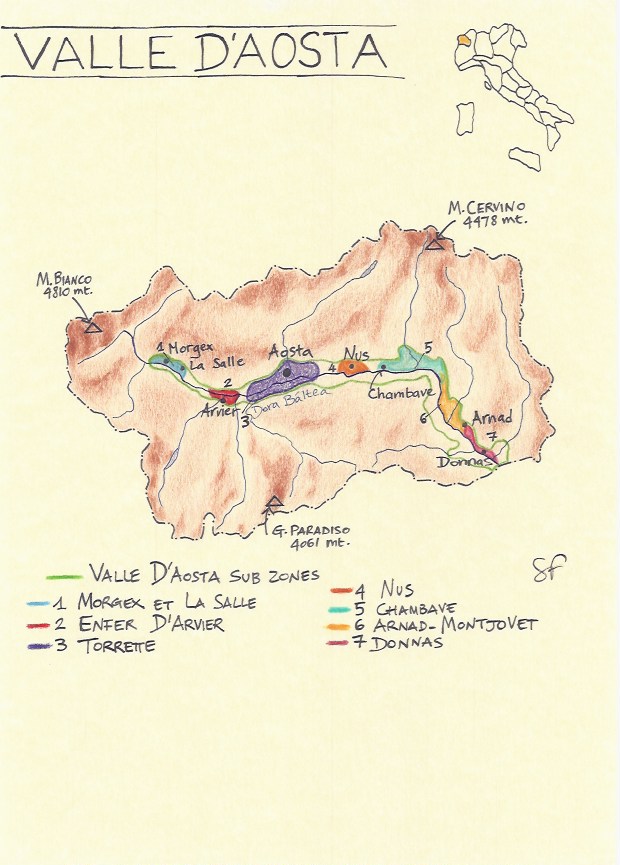 VALLE D'AOSTA
M. CERVINO
4478 mt.
M. BIANCO
4810 mt.
1 Morgex
La Salle
2
Arvier
3
Aosta
Dora Báltea
4
Nus
5
Chambave
6
Arnad
7
Donnas
G. PARADISO
4061 mt.
VALLE D'AOSTA SUB ZONES
1 MORGEX ET LA SALLE
2 ENFER D'ARVIER
3 TORRETTE
4 NUS
5 CHAMBAVE
6 ARNAD-MONTJOVET
7 DONNAS
SF